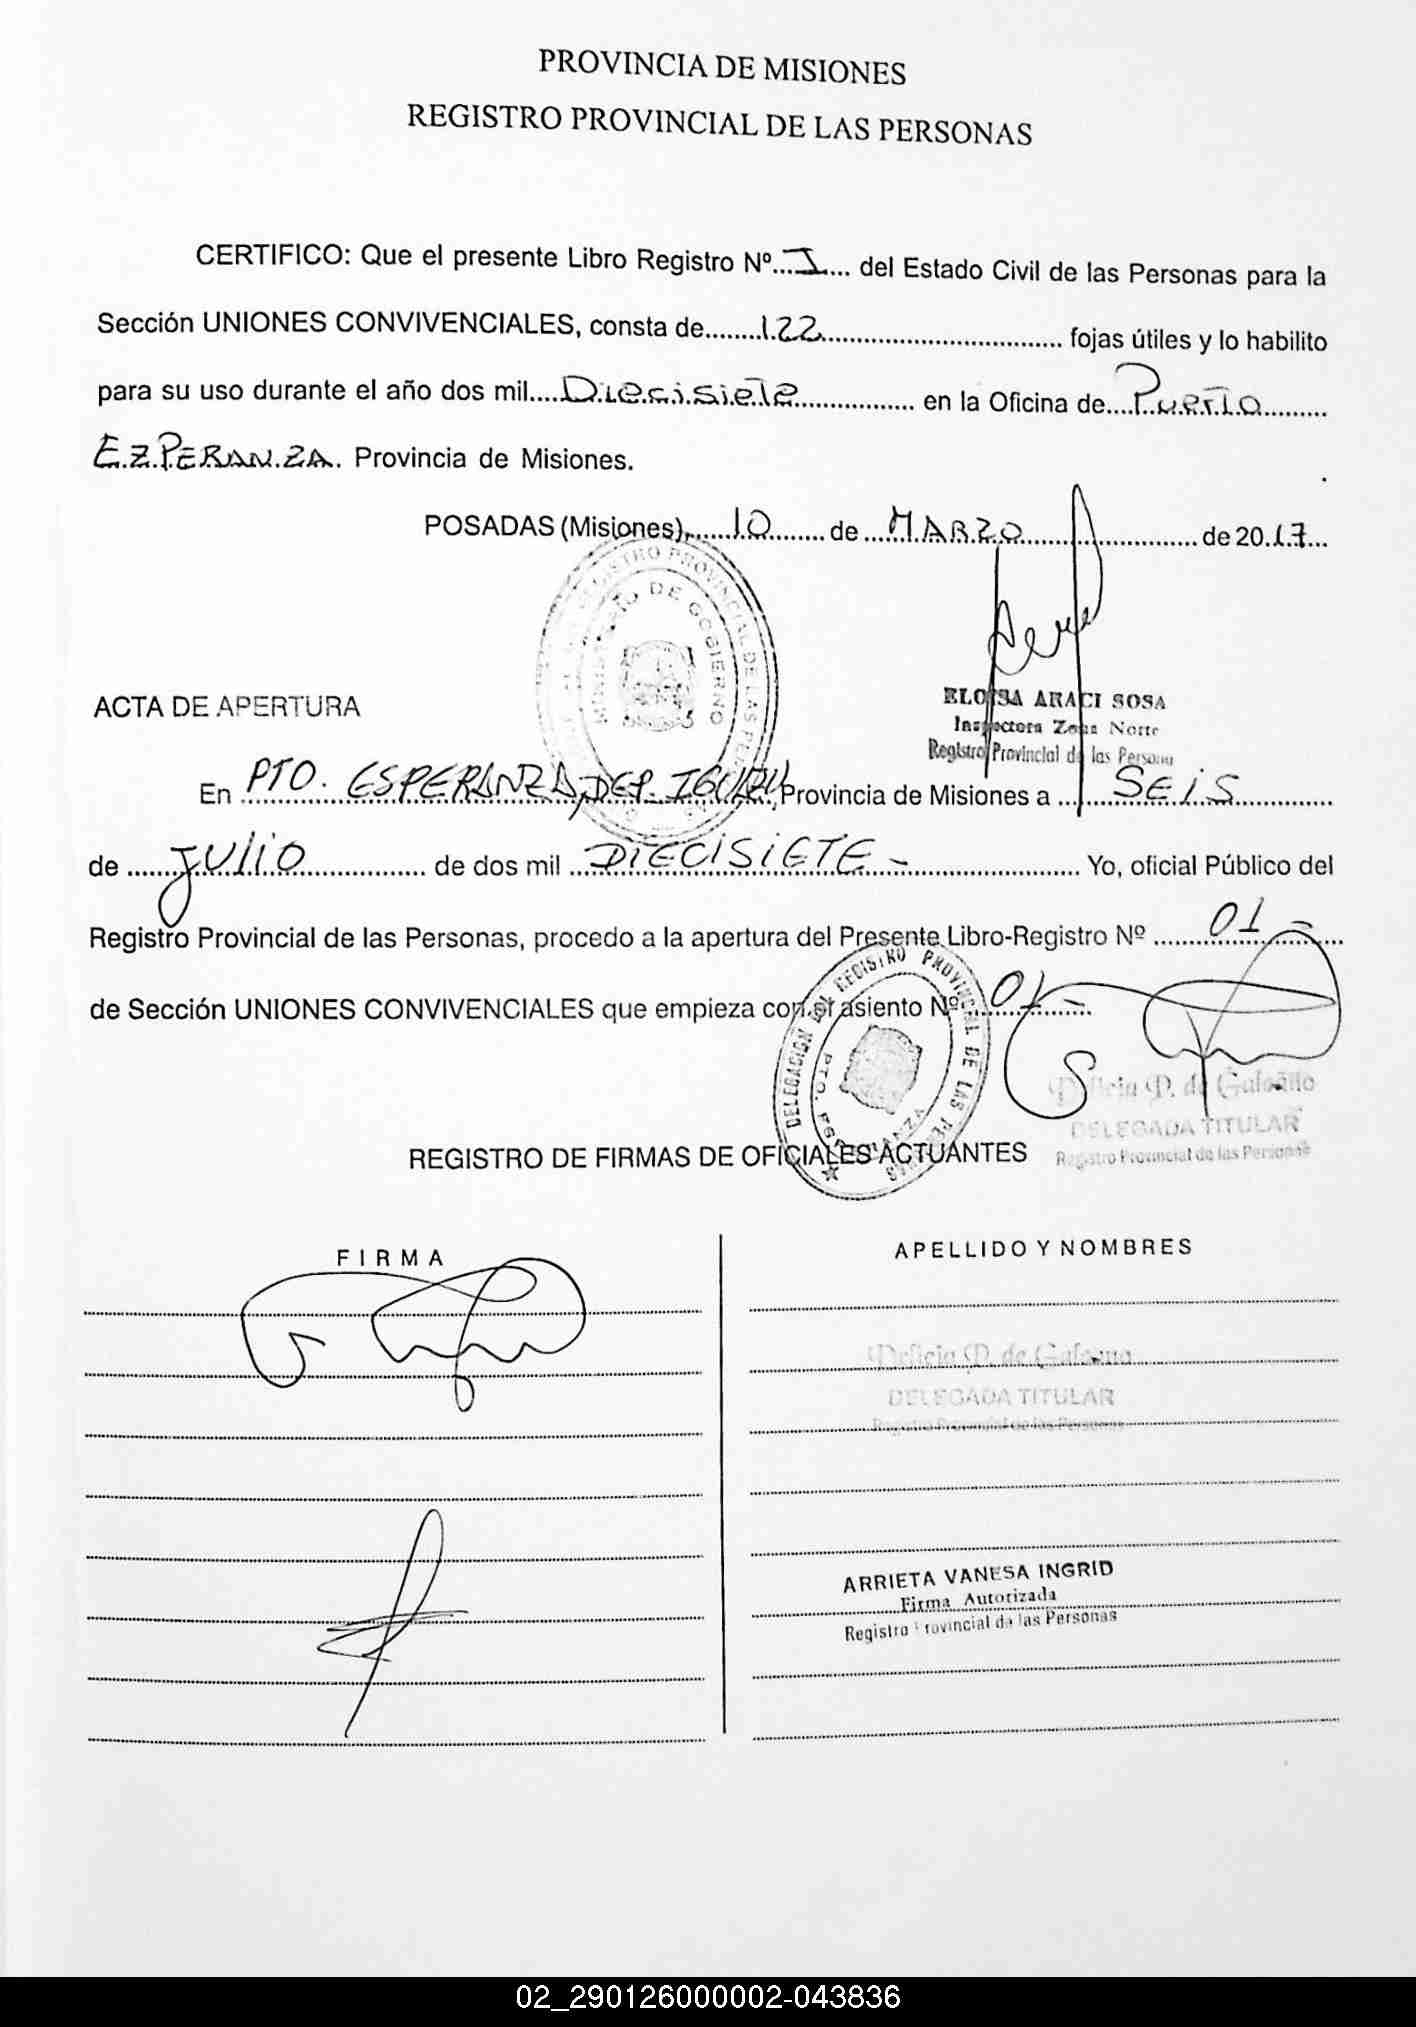 PROVINCIA DE MISIONES
REGISTRO PROVINCIAL DE LAS PERSONAS
CERTIFICO: Que el presente Libro Registro Nº....I.... del Estado Civil de las Personas para la
Sección UNIONES CONVIVENCIALES, consta de........122.................................. fojas útiles y lo habilito
para su uso durante el año dos mil.....Diecisiete................ en la Oficina de....Puerto.........
EZPERANZA. Provincia de Misiones.
POSADAS (Misiones),......10........ de ...MARZO......................... de 2017...
REGISTRO PROVINCIAL DE LAS
MINISTERIO DE GOBIERNO
ELOISA ARACI SOSA
Inspectora Zona Norte
Registro Provincial de las Persona
ACTA DE APERTURA
En PTO. ESPERANZA, DEP. IGUAZU, Provincia de Misiones a ........SEIS..............
de ......JULIO.................. de dos mil ..DIECISIETE.-......................... Yo, oficial Público del
Registro Provincial de las Personas, procedo a la apertura del Presente Libro-Registro Nº ........01.-.....
de Sección UNIONES CONVIVENCIALES que empieza con el asiento Nº....01.-.......
DELEGACION DEL REGISTRO PROVINCIAL DE LAS PERSONAS
PTO. ESPERANZA
Delicia P. de Galeano
DELEGADA TITULAR
Registro Provincial de las Personas
REGISTRO DE FIRMAS DE OFICIALES ACTUANTES
FIRMA
APELLIDO Y NOMBRES
Delicia P. de Galeano
DELEGADA TITULAR
Registro Provincial de las Personas
ARRIETA VANESA INGRID
Firma Autorizada
Registro Provincial de las Personas
02_290126000002-043836